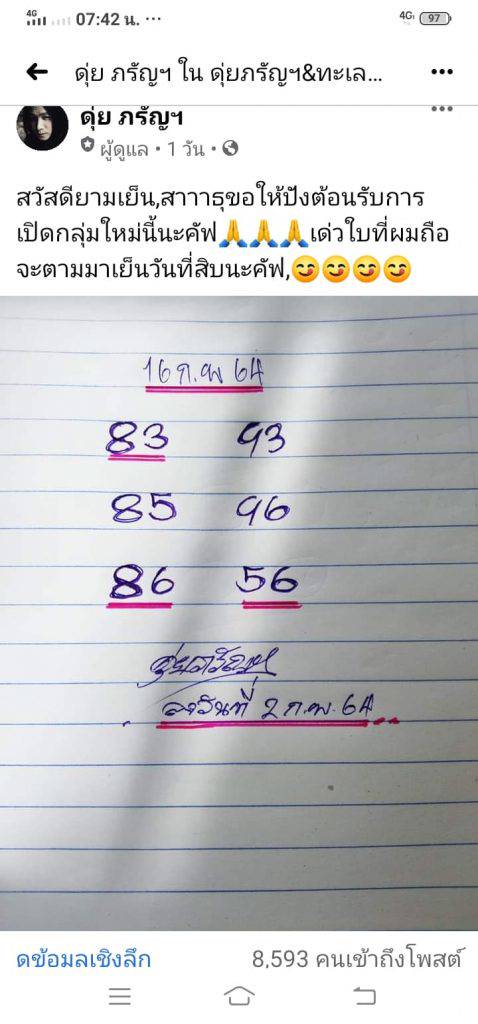 4G 07:42 น. ··· 4G 97
ดุ่ย ภรัญฯ ใน ดุ่ยภรัญฯ&ทะเล...
ดุ่ย ภรัญฯ
ผู้ดูแล • 1 วัน •
สวัสดียามเย็น,สาาาธุขอให้ปังต้อนรับการ
เปิดกลุ่มใหม่นี้นะคัฟ🙏🙏🙏เด่วใบที่ผมถือ
จะตามมาเย็นวันที่สิบนะคัฟ,😋😋😋😋
16 ก.พ 64
83 93
85 96
86 56
ดุ่ยภรัญฯ
ลงวันที่ 2 ก.พ. 64
ดูข้อมูลเชิงลึก 8,593 คนเข้าถึงโพสต์